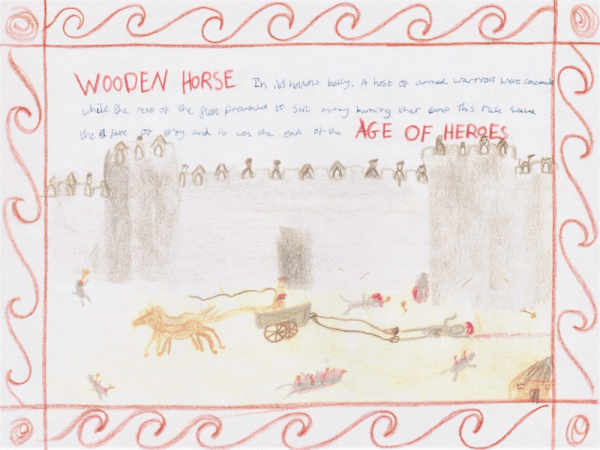 WOODEN HORSE In its hollow belly, A host of armed warriors were
while the rest of the fleet pretended to sail away burning their This ruse
the fate of troy and it was the end of the AGE OF HEROES.